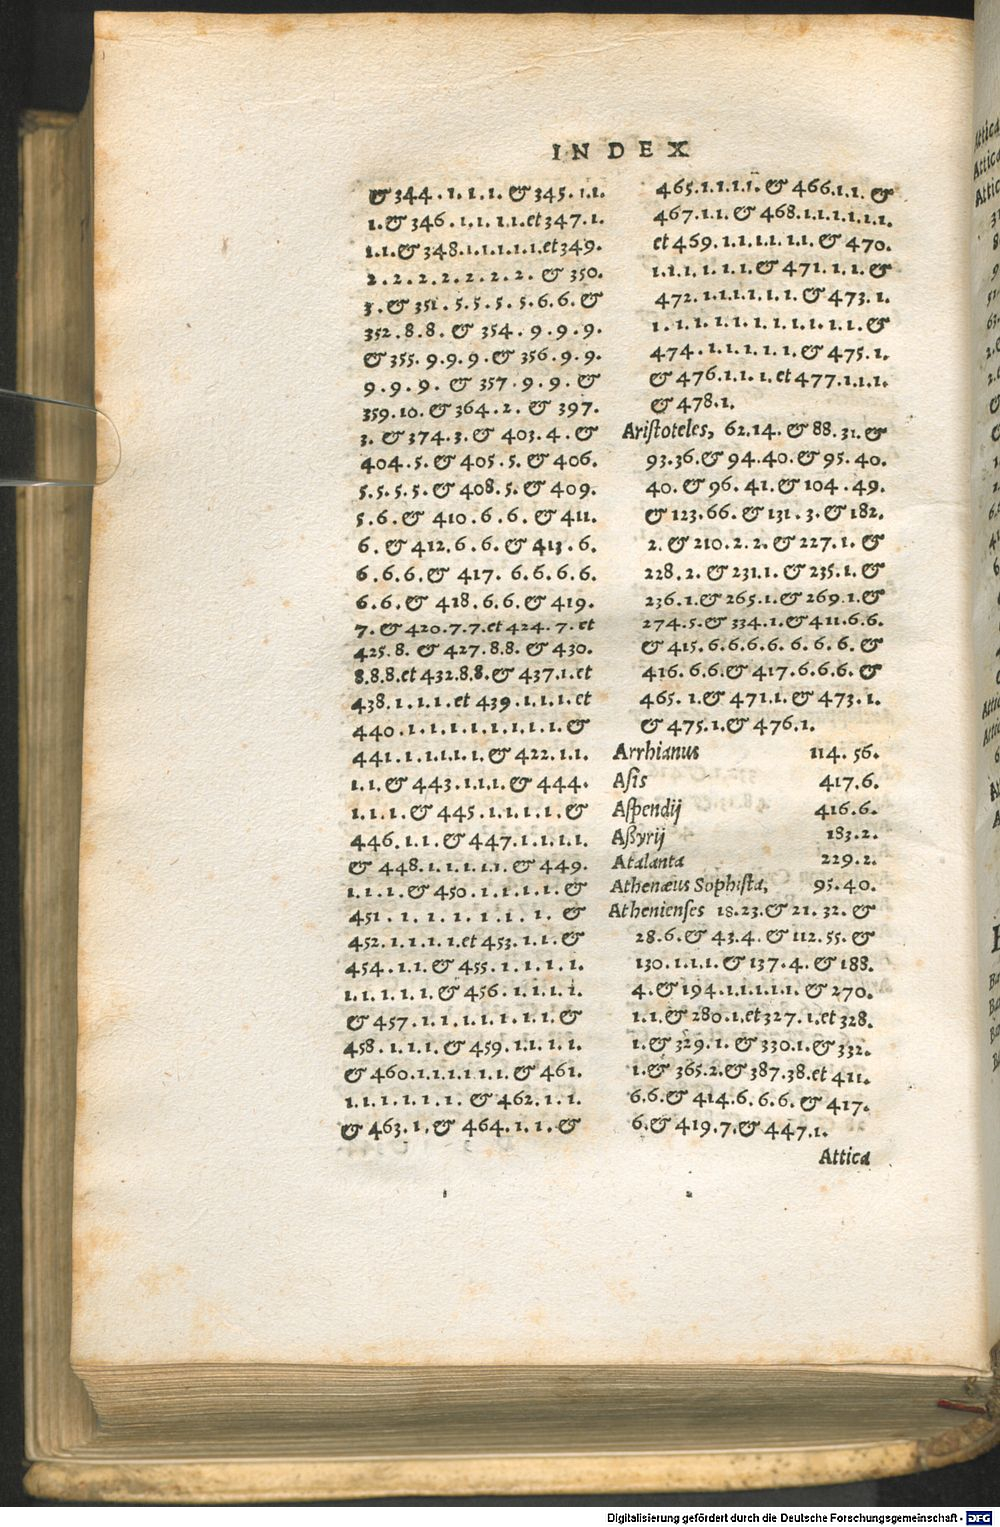 INDEX
& 344.1.1.1. & 345.1.1.
1.& 346.1.1.1.1.et 347.1.
1.1.& 348.1.1.1.1.1.et 349.
2.2.2.2.2.2.2.2. & 350.
3.& 351. 5.5.5.5.6.6. &
352.8.8. & 354. 9.9.9.
& 355.9.9.9.& 356.9.9.
9.9.9. & 357.9.9. &
359.10. & 364.2. & 397.
3. & 374.3.& 403.4. &
404.5.& 405.5. & 406.
5.5.5.5.& 408.5.& 409.
5.6.& 410.6.6. & 411.
6. & 412.6.6.& 413.6.
6.6.6.& 417. 6.6.6.6.
6.6.& 418.6.6.& 419.
7. & 420.7.7.et 424.7.et
425.8. & 427.8.8. & 430.
8.8.8.et 432.8.8.& 437.1.et
438.1.1.1.et 439.1.1.1.et
440.1.1.1.1.1.1.1.1.&
441.1.1.1.1.1.& 422.1.1.
1.1.& 443.1.1.1.& 444.
1.1.1.& 445.1.1.1.1.&
446.1.1.& 447.1.1.1.1.
& 448.1.1.1.1.1.& 449.
1.1.1.& 450.1.1.1.1.&
451.1.1.1.1.1.1.1. &
452.1.1.1.1.et 453.1.1.&
454.1.1.& 455.1.1.1.1.
1.1.1.1.1.& 456.1.1.1.1.
& 457.1.1.1.1.1.1.1.&
458.1.1.1.& 459.1.1.1.1.
& 460.1.1.1.1.1.1.& 461.
1.1.1.1.1.1. & 462.1.1.
& 463.1.& 464.1.1.&
465.1.1.1.1.& 466.1.1. &
467.1.1.& 468.1.1.1.1.1.1.
et 469.1.1.1.1.1.1.& 470.
1.1.1.1.1.1.& 471.1.1.&
472.1.1.1.1.1.1.& 473.1.
1.1.1.1.1.1.1.1.1.1.1.&
474.1.1.1.1.1.& 475.1.
& 476.1.1.1.et 477.1.1.1.
& 478.1.
Aristoteles, 62.14. & 88.31.&
93.36.& 94.40.& 95.40.
40.& 96.41.& 104.49.
& 123.66.& 131.3.& 182.
2. & 210.2.2.& 227.1. &
228.2. & 231.1. & 235.1.&
236.1.& 265.1.& 269.1.&
274.5.& 334.1.& 411.6.6.
& 415.6.6.6.6.6.6.6.&
416.6.6.& 417.6.6.6.&
465.1.& 471.1.& 473.1.
& 475.1.& 476.1.
Arrhianus 114.56.
Aſis 417.6.
Aſpendij 416.6.
Aßyrij 183.2.
Atalanta 229.2.
Athenæus Sophista, 95.40.
Athenienſes 18.23.& 21.32. &
28.6.& 43.4. & 112.55.&
130.1.1.1.& 137.4.& 188.
4.& 194.1.1.1.1.1.& 270.
1.1.& 280.1.et 327.1.et 328.
1.& 329.1.& 330.1.& 332.
1.& 365.2.& 387.38.et 411.
6.6.& 414.6.6.6.& 417.
6.& 419.7.& 447.1.
Attica
Digitalisierung gefördert durch die Deutsche Forschungsgemeinschaft - DFG